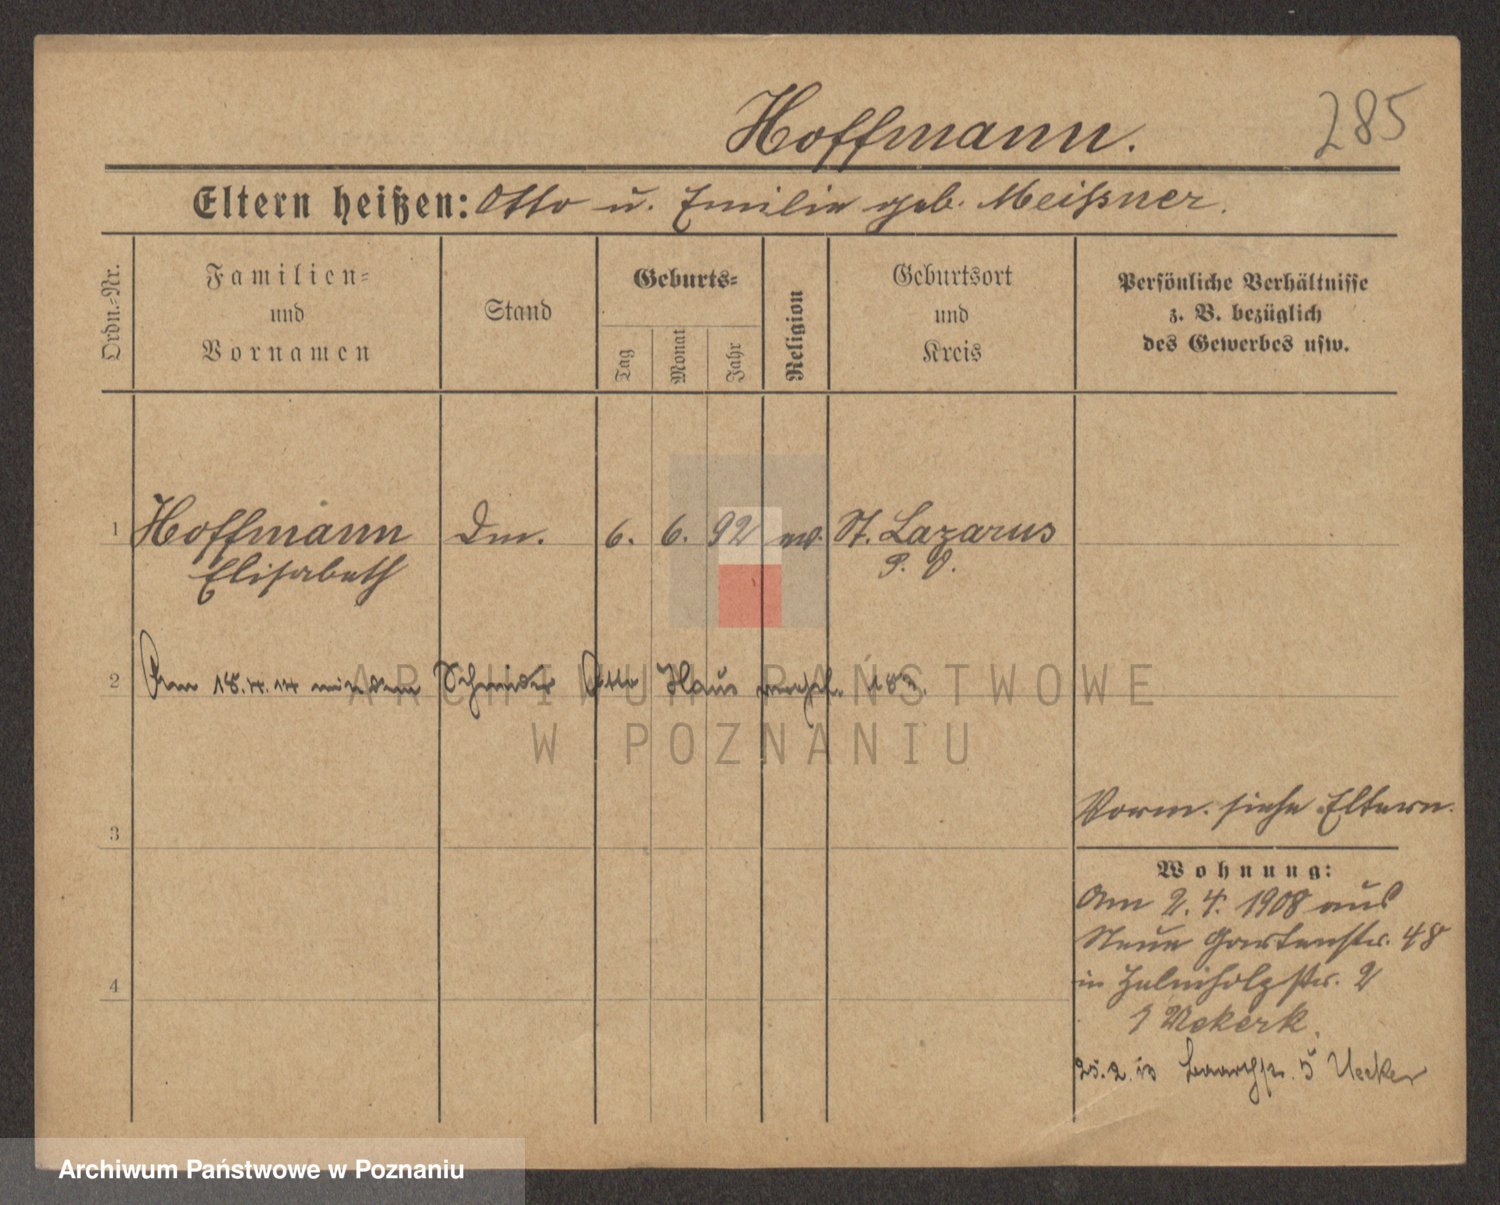 Hoffmann.
285
Eltern heißen: Otto u. Emilie geb. Meißner.
Ordn.-Nr.
Familien-
und
Vornamen
Stand
Geburts-
Tag
Monat
Jahr
Religion
Geburtsort
und
Kreis
Persönliche Verhältnisse
z. B. bezüglich
des Gewerbes usw.
1 Hoffmann 6. 6. 92 St. Lazarus
Elisabeth
2 Am Schneider Otto Haus
3
Vorm. siehe Eltern.
Wohnung:
Am 2. 4. 1908 aus
Neue Gartenstr. 48
4
in 2
25.2.13 5 Uecker
ARCHIWUM PAŃSTWOWE
W POZNANIU
Archiwum Państwowe w Poznaniu